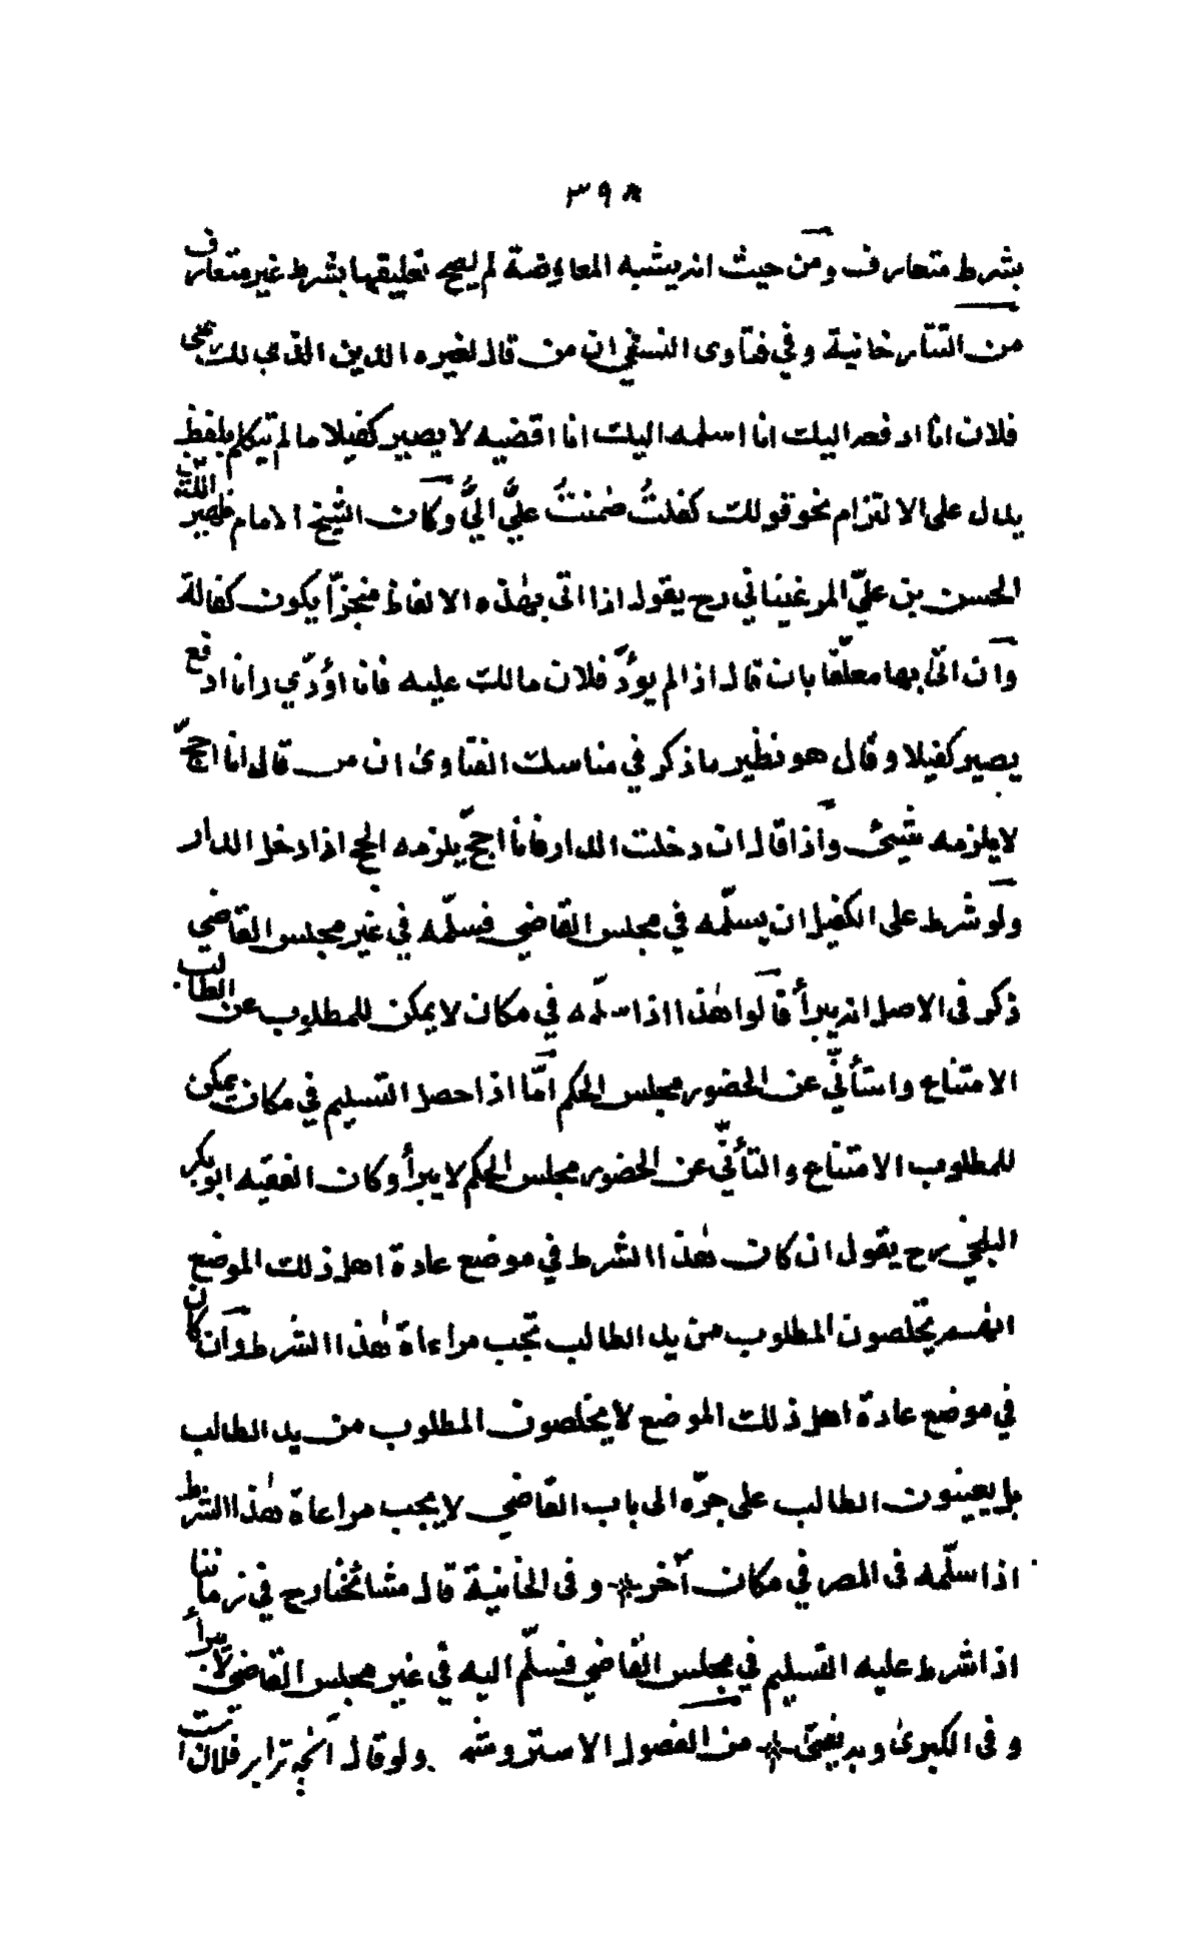 ٣٩٨
بشرط متعارف ومن حيث انه يشبه المعاوضة لم يصح تعليقها بشرط غير متعارف
من التتارخانية وفي فتاوى النسفي ان من قال لغيره الدين الذي لك على
فلان انا ادفعه اليك انا اسلمه اليك انا اقضيه لا يصير كفيلا ما لم يتكلم بلفظ
يدل على الالتزام نحو قولك كفلتُ ضمنتُ عليَّ اليَّ وكان الشيخ الامام ظهير الدين
الحسن بن عليّ المرغيناني رح يقول اذا اتى بهٰذه الالفاظ منجزاً يكون كفالة
وان اتىٰ بها معلّقا بان قال اذا لم يؤدّ فلان مالك عليه فانا اؤدّي وانا ادفع
يصير كفيلا وقال هو نظير ما ذكر في مناسك الفتاوىٰ ان من قال انا احجّ
لا يلزمه شيئ واذا قال ان دخلت الدار فانا احجّ يلزمه الحج اذا دخل الدار
ولو شرط على الكفيل ان يسلّمه في مجلس القاضي فسلّمه في غير مجلس القاضي
ذكر فى الاصل انه يبرأ قالوا هٰذا اذا سلّمه في مكان لا يمكن للمطلوب عن الطالب
الامتناع واستأنّي عن الحضور مجلس الحكم امّا اذا حصل التسليم في مكان يمكن
للمطلوب الامتناع والتأنّي عن الحضور مجلس الحكم لا يبرأ وكان الفقيه ابو بكر
البلخي رح يقول ان كان هٰذا الشرط في موضع عادة اهل ذلك الموضع
انهم يخلصون المطلوب من يد الطالب تجب مراءاة هٰذا الشرط وان كان
في موضع عادة اهل ذلك الموضع لا يخلصون المطلوب من يد الطالب
بل يعينون الطالب على جرّه الى باب القاضي لا يجب مراعاة هٰذا الشرط
اذا سلّمه فى المصر في مكان آخر * وفى الخانية قال مشائخنا رح في زماننا
اذا شرط عليه التسليم في مجلس القاضي فسلّم اليه في غير مجلس القاضي لا يبرأ
وفى الكبرىٰ وبه يفتىٰ * من الفصول الاستروشنه ولو قال آنچه ترا بر فلان است